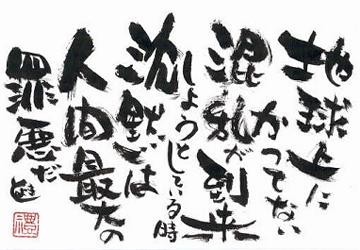 地球上に
かつてない
混乱が到来
しようとしている時
沈黙は
人間最大の
罪悪だ